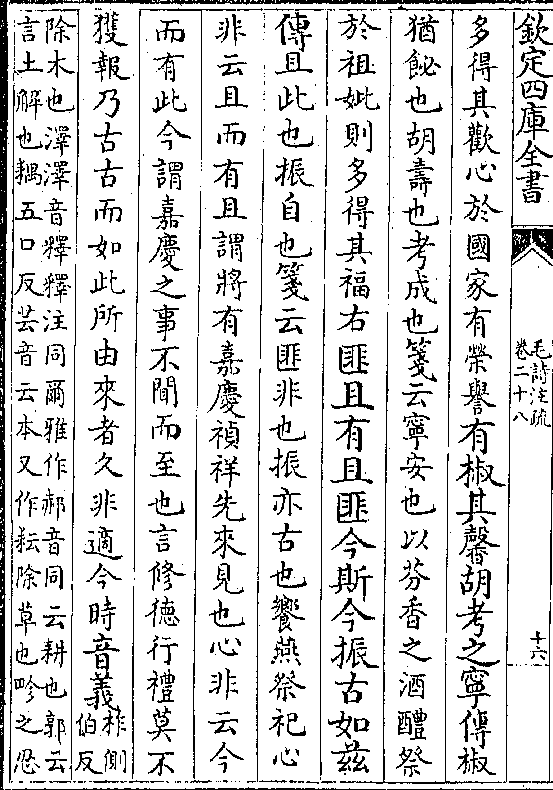 欽定四庫全書
毛詩注疏
卷二十八
十六
多得其歡心於國家有榮譽有椒其馨胡考之寧傳椒
猶飶也胡壽也考成也箋云寧安也以芬香之酒醴祭
於祖妣則多得其福右匪且有且匪今斯今振古如茲
傳且此也振自也箋云匪非也振亦古也饗燕祭祀心
非云且而有且謂將有嘉慶禎祥先來見也心非云今
而有此今謂嘉慶之事不聞而至也言修德行禮莫不
獲報乃古古而如此所由來者久非適今時音義柞側
伯反
除木也澤澤音釋釋注同爾雅作郝音同云耕也郭云
言土解也耦五口反芸音云本又作耘除草也畛之忍